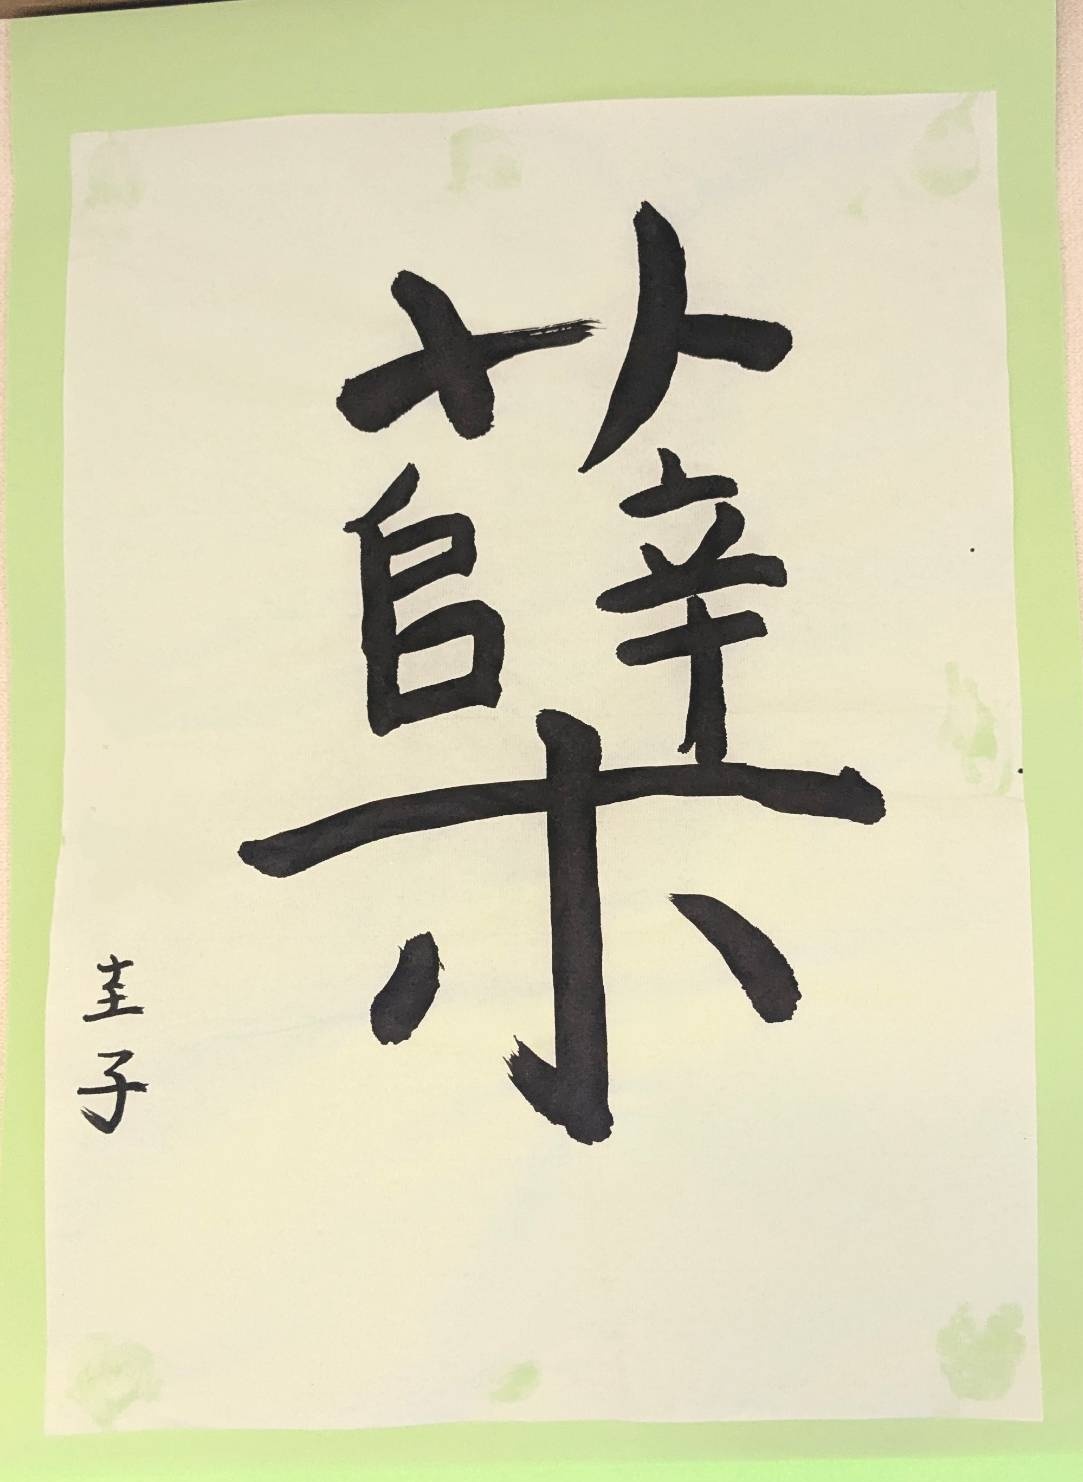 蘖
圭子